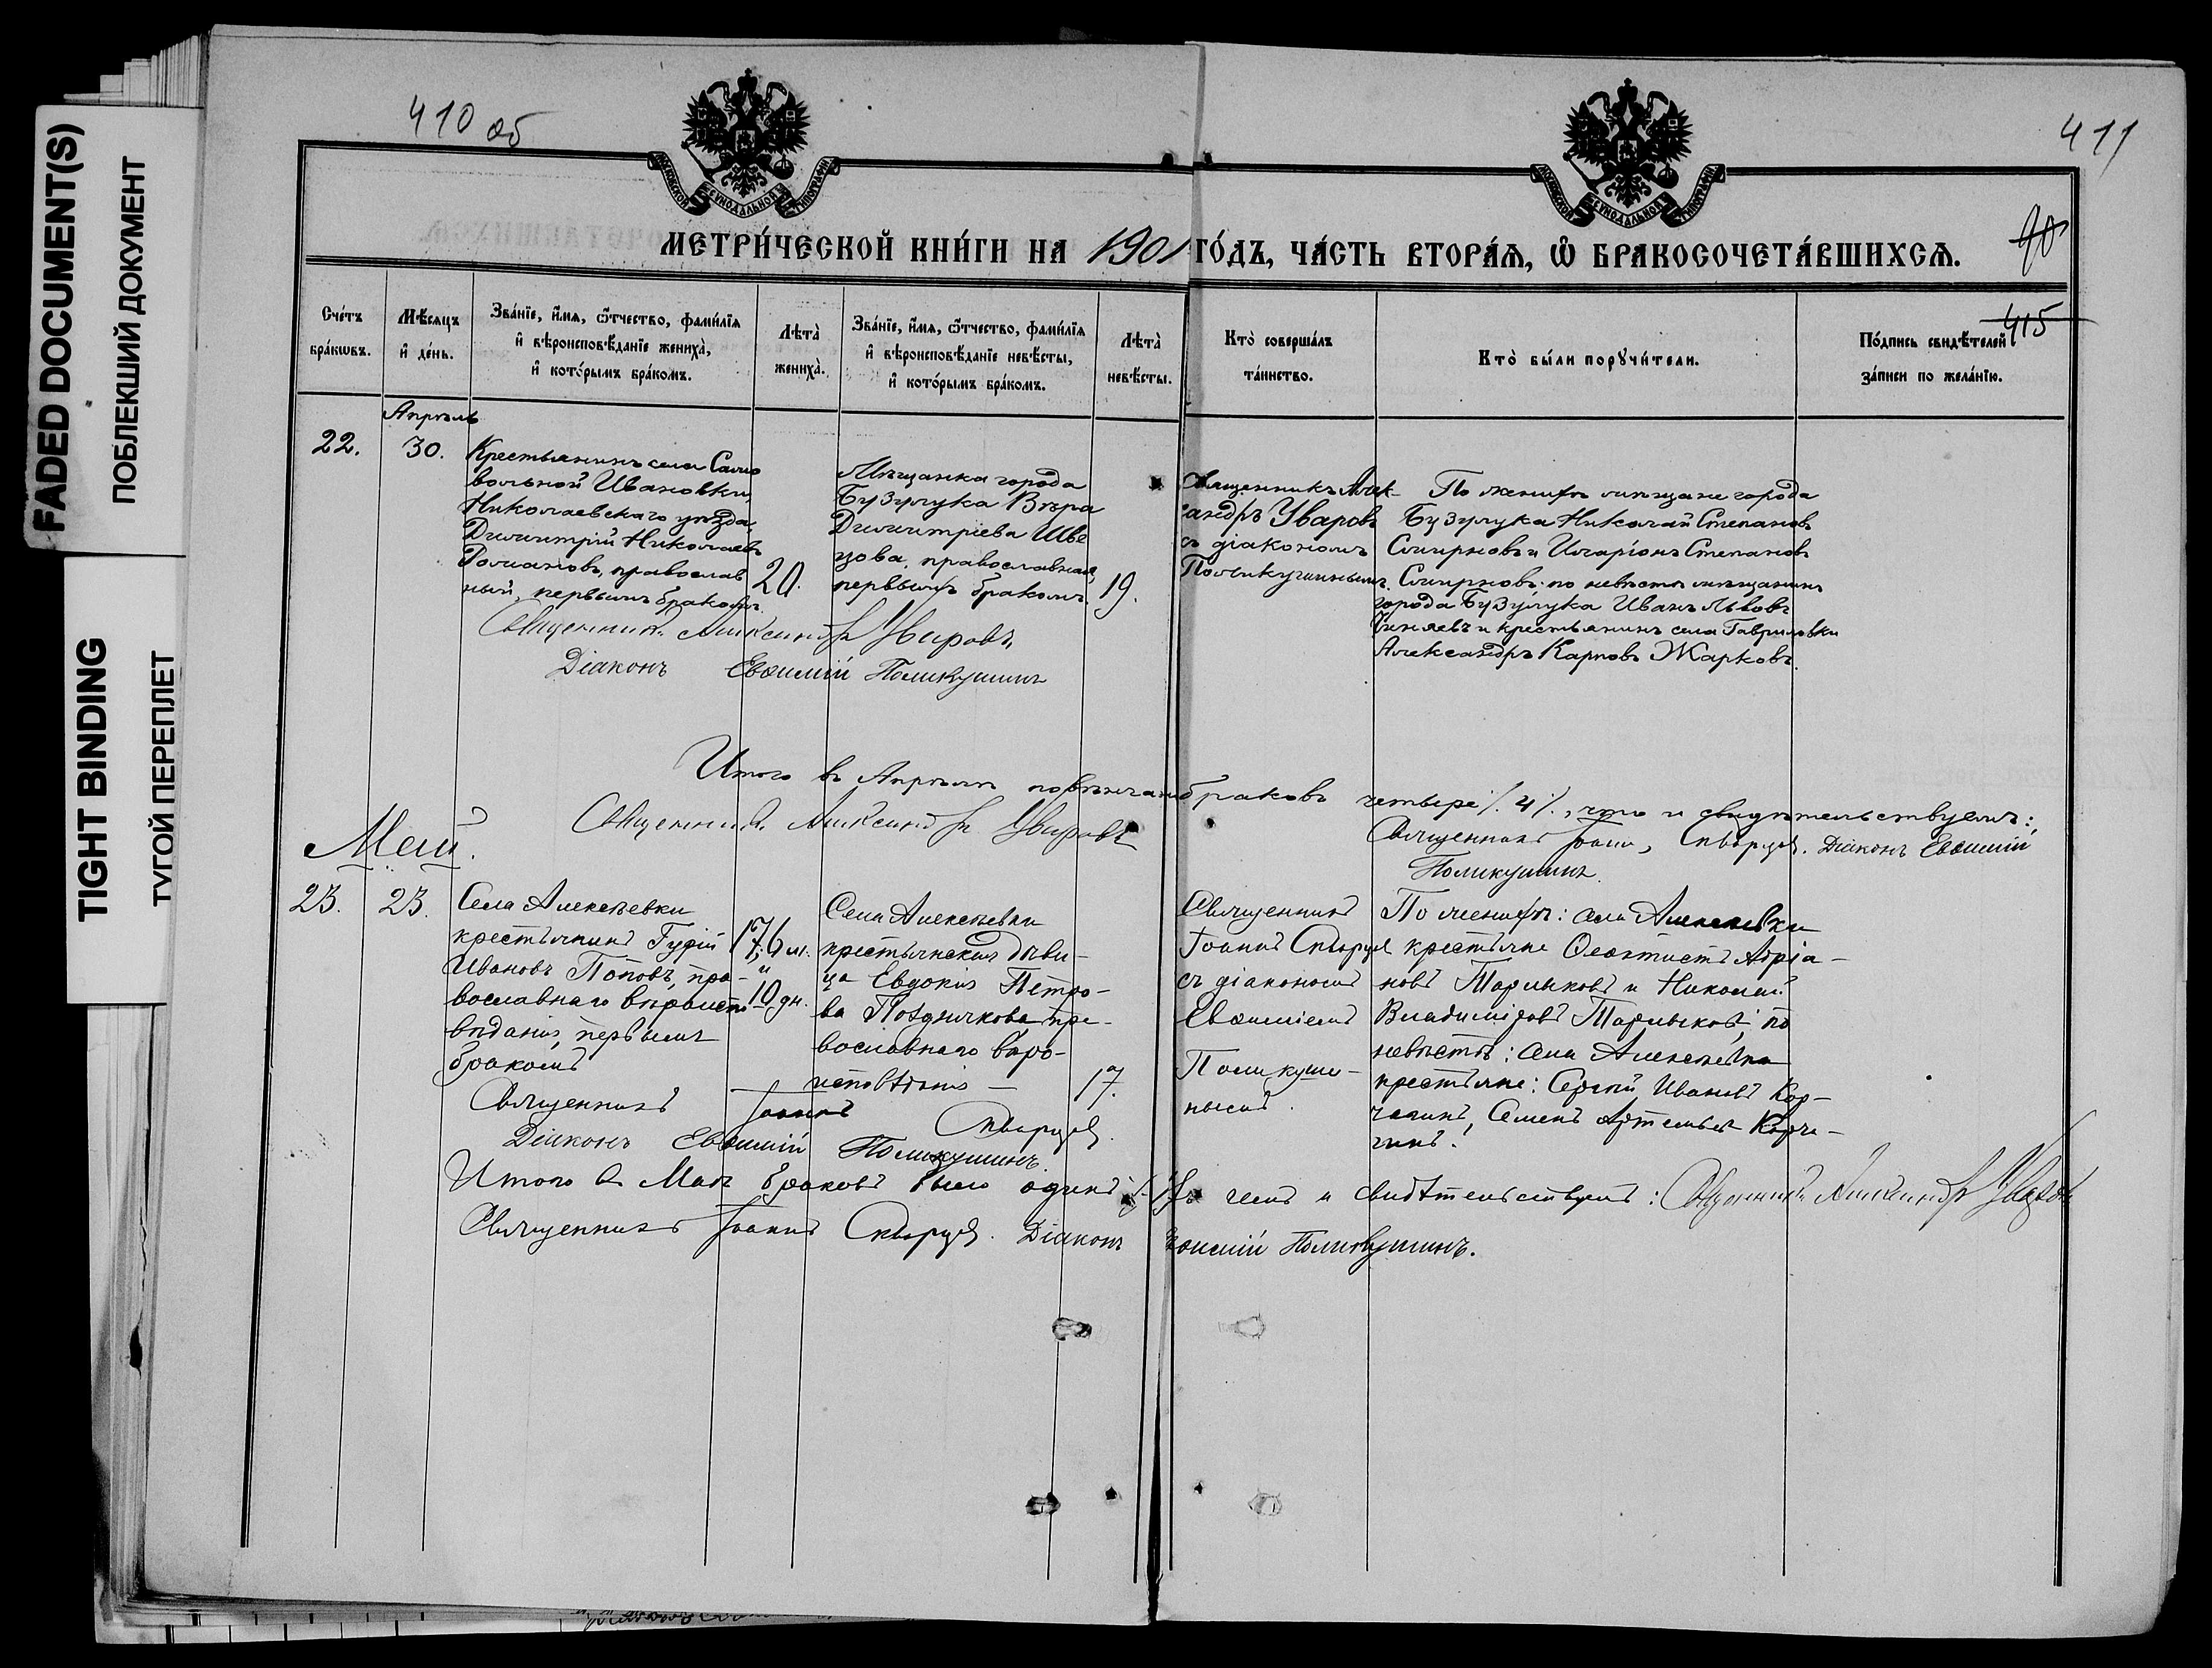 FADED DOCUMENT(S)
ПОБЛЕКШИЙ ДОКУМЕНТ
TIGHT BINDING
ТУГОЙ ПЕРЕПЛЕТ
410 об
411
МОСКОВСКОЙ СѴНОДАЛЬНОЙ ТИПОГРАФІИ
МОСКОВСКОЙ СѴНОДАЛЬНОЙ ТИПОГРАФІИ
90
МЕТРИ́ЧЕСКОЙ КНИ́ГИ НА 1901 ГО́ДЪ, ЧА́СТЬ ВТОРА́Ѧ, Ѽ БРАКОСОЧЕТА́ВШИХСѦ.
415
Сче́тъ бра́кѡвъ.
Мѣ́сяцъ и҆ де́нь.
Зва́нїе, и҆́мя, ѻ҆́тчество, фами́лїя
и҆ вѣроисповѣ́данїе жениха̀,
и҆ кото́рымъ бра́комъ.
Лѣта̀ жениха̀.
Зва́нїе, и҆́мя, ѻ҆́тчество, фами́лїя
и҆ вѣроисповѣ́данїе невѣ́сты,
и҆ кото́рымъ бра́комъ.
Лѣта̀ невѣ́сты.
Кто̀ соверша́лъ та́инство.
Кто̀ бы́ли порꙋчи́тели.
По́дпись свидѣ́телей за́писи по жела́нїю.
Апрѣль
22.
30.
Крестьянинъ села Само
вольной Ивановки,
Николаевскаго уѣзда,
Димитрій Николаевъ
Романовъ, православ
ный, первымъ бракомъ.
20.
Мѣщанка города
Бузулука Вѣра
Димитріева Шве
цова, православная,
первымъ бракомъ.
19.
Священникъ Алек-
сандръ Уваровъ
съ діакономъ
Поликушинымъ.
По женихѣ мѣщане города
Бузулука Николай Степановъ
Смирновъ и Иларіонъ Степановъ
Смирновъ; по невѣстѣ мѣщанинъ
города Бузулука Иванъ Львовъ
и крестьянинъ села Гавриловки
Александръ Карповъ Жарковъ.
Священникъ Александръ Уваровъ
Діаконъ Евѳимій Поликушинъ
Итого въ Апрѣлѣ повѣнчано браковъ четыре /. 4 /., что и свидѣтельствуемъ:
Священникъ Александръ Уваровъ
Священникъ Іоаннъ Скворцовъ. Діаконъ Евѳимій
Поликушинъ.
Май.
23.
23.
Села Алексѣевки
крестьянинъ Гурій
Ивановъ Поповъ, пра-
вославнаго вѣроиспо
вѣданія, первымъ
бракомъ
17, 6 м.
и
10 дн.
Села Алексѣевки
крестьянская дѣви-
ца Евдокія Петро-
ва Позднякова, пра-
вославнаго вѣро-
исповѣданія —
17.
Священникъ
Іоаннъ Скворцовъ
съ діакономъ
Евѳиміемъ
Поликуши-
нымъ.
По женихѣ: села Алексѣевки
крестьяне Ѳеоктистъ Адріа-
новъ Тарлыковъ и Николай
Владиміровъ Тарлыковъ; по
невѣстѣ: села Алексѣевки
крестьяне: Сергѣй Ивановъ Кор-
чагинъ, Семенъ Артемьевъ Корча-
гинъ.
Священникъ Іоаннъ Скворцовъ.
Діаконъ Евѳимій Поликушинъ.
Итого въ Маѣ браковъ было одинъ /. 1 /. въ чемъ и свидѣтельствуемъ: Священникъ Александръ Уваровъ
Священникъ Іоаннъ Скворцовъ. Діаконъ Евѳимій Поликушинъ.